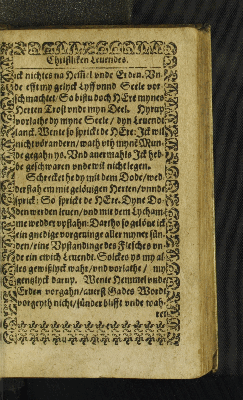 Christliken Leuendes.
ick nichtes na Hemel vnde Erden. Vn
de efft my gelyck Lyff vnnd Seele vor
schmachtet So bistu doch HEre mynes
Herten Trost vnde myn Deel. Hyrup
vorlathe dy myne Seele / dyn Leuend
lanck. Wente so sprickt de HEre: Ick wil
nicht vörandern / wath vth mynē Mun
de gegahn ys. Vnd auermahls Ick heb
be geschwaren vnde wil nicht legen.
Schrecket he dy mit dem Dode / wed
derstah em mit gelöuigen Herten / vnnde
sprick: So sprickt de HEre. Dyne Do
den werden leuen / vnd mit dem Lycham
me wedder vpstahn: Dartho so gelöue ick
ein gnedige vorgeuinge aller myner sün
den / eine Vpstandinge des Flesches vn
de ein ewich Leuendt. Solckes ys my al
les gewißlyck wahr / vnd vorlathe / my
gentzlyck darup. Wente Hemmel vnde
Erden vorgahn / auerst Gades Wordt
vorgeyth nicht / sünder blifft vnde wah
ret